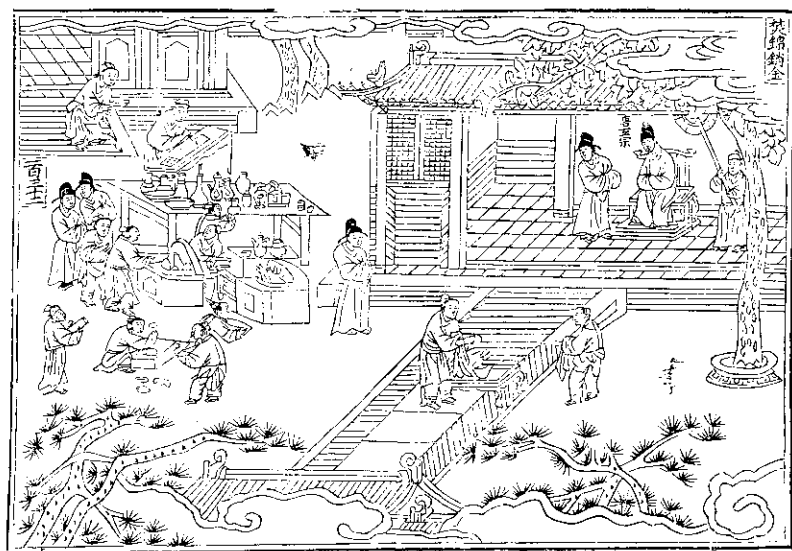 焚錦銷金
唐玄宗
百工